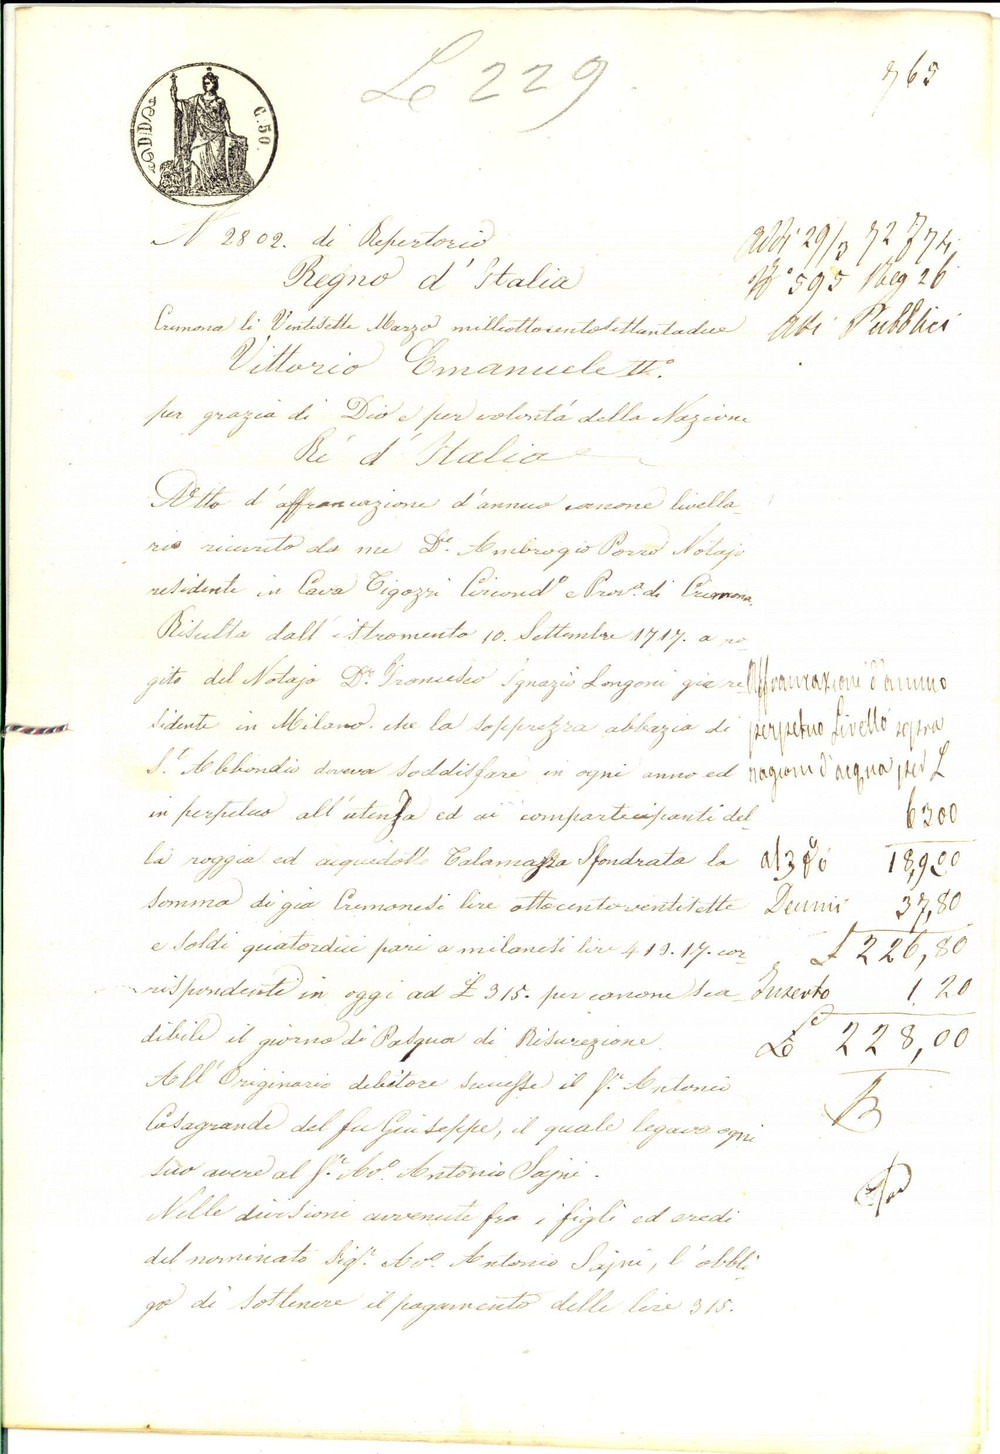 Le 229
765
C. 50.
N 2802. di Repertorio
Regno d'Italia
Cremona li Ventisette Marzo milleottocentosettantadue
Vittorio Emanuele II°.
per grazia di Dio e per volontá della Nazione
Ré d'Italia
Atto d'affrancazione d'annuo canone livella-
rio ricevuto da me Dr. Ambrogio Porro Notajo
residente in Cava Tigozzi Circond° e Prov.a di Cremona.
Risulta dall'istromento 10. Settembre 1717. a ro-
gito del Notajo Dr. Francesco Ignazio Longoni giá re-
sidente in Milano. che la soppressa abbazia di
St. Abbondio doveva soddisfare in ogni anno ed
in perpetuo all'utenza ed ai compartecipanti del-
la roggia ed acquedotto Talamazza Sfondrata la
somma di giá Cremonesi lire ottocentoventisette
e soldi quatordici pari a milanesi lire 419.17. cor-
rispondenti in oggi ad £ 315. per canone sca-
dibile il giorno di Pasqua di Risurezione.
All'Originario debitore successe il Sr. Antonio
Casagrande del fu Giuseppe, il quale legava ogni
suo avere al Sr. Avo. Antonio Sajni.
Nelle divisioni avvenute fra i figli ed eredi
del nominato Sigr. Avo. Antonio Sajni, l'obbli-
go di sostenere il pagamento delle lire 315.
Addi 29/3 72
N° 595 Reg 26
Atti Pubblici
Affrancazione d'annuo
perpetuo Livello sopra
ragioni d'acqua per £
6300
al 3 % 18,900
Decimi 37,80
£ 226,80
Inserto 1.20
Le 228,00